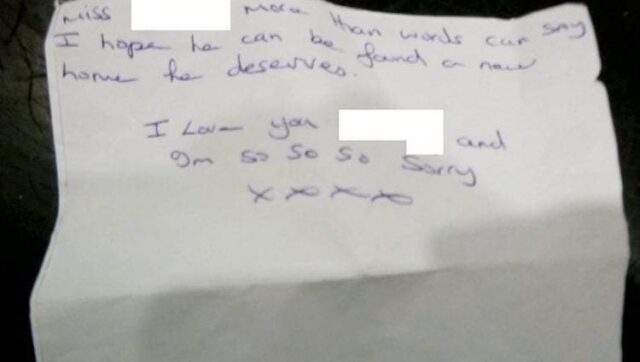 Miss More than words can say
I hope he can be found a new
home he deserves.
I Love you and
I'm so so so Sorry
x x x x